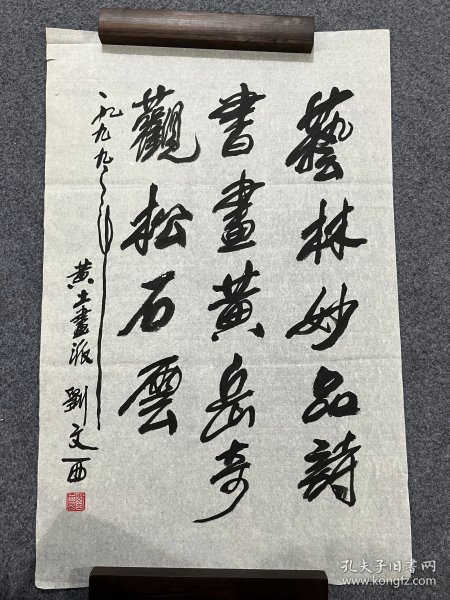 藝林妙品詩
書畫黃岳奇
觀松石雲
一九九九年
黄土畫派 劉文西
孔夫子旧书网
www.kongfz.com